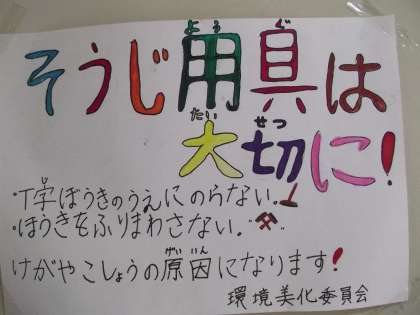 そうじ用具は
大切に!
・T学ぼうきのうえにのらない。
・ほうきをふりまわさない。
けがやこしょうの原因になります!
環境美化委員会